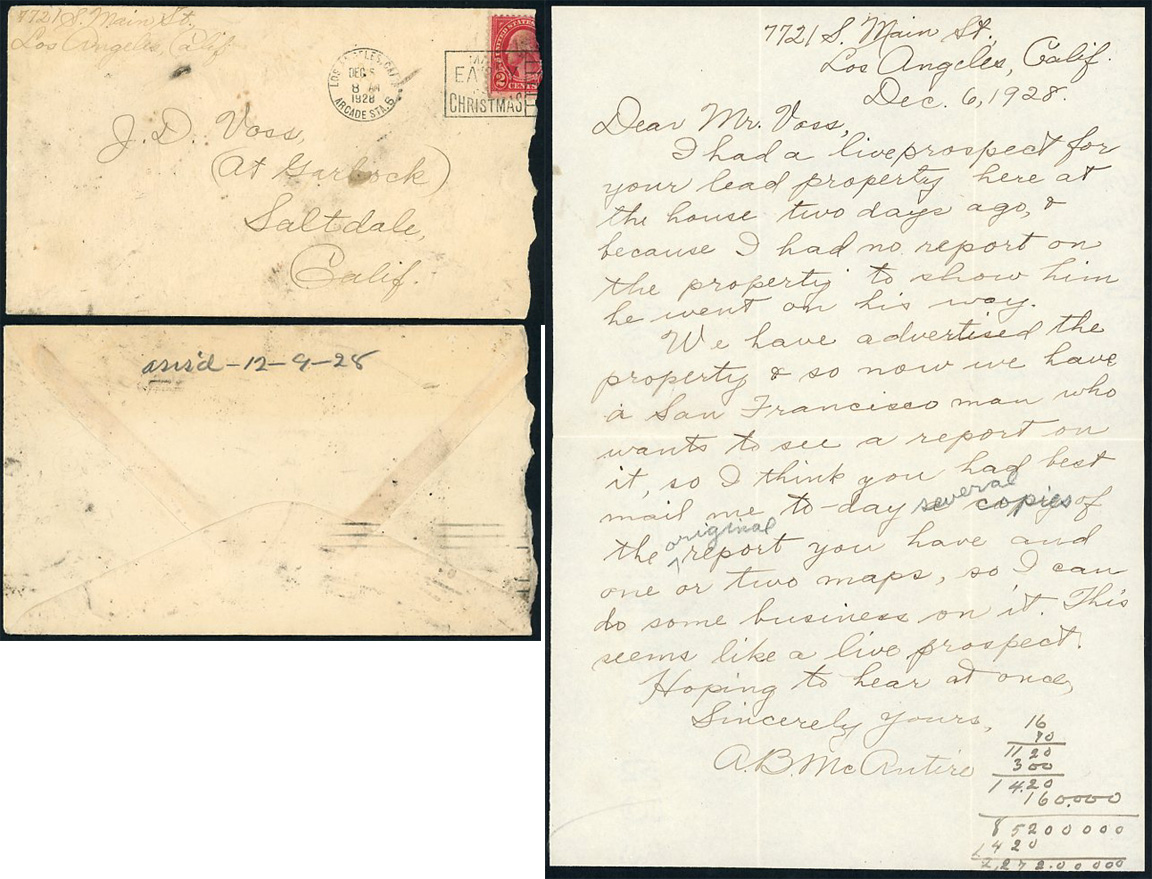 7721 S. Main St.
Los Angeles, Calif.
LOS ANGELES, CALIF.
DEC
8 AM
1928
ARCADE STA. 6
UNITED STATES
2
CENTS
CHRISTMAS
J. D. Voss,
(At Garlock)
Saltdale,
Calif.
ans'd - 12-9-28
7721 S. Main St.,
Los Angeles, Calif.
Dec. 6, 1928.
Dear Mr. Voss,
I had a live prospect for
your lead property here at
the house two days ago, &
because I had no report on
the property to show him
he went on his way.
We have advertised the
property & so now we have
a San Francisco man who
wants to see a report on
it, so I think you had best
mail me to-day several copies of
the original report you have and
one or two maps, so I can
do some business on it. This
seems like a live prospect.
Hoping to hear at once,
Sincerely yours,
A. B. McAntire
16
70
1120
300
1420
160.000
85200000
1420